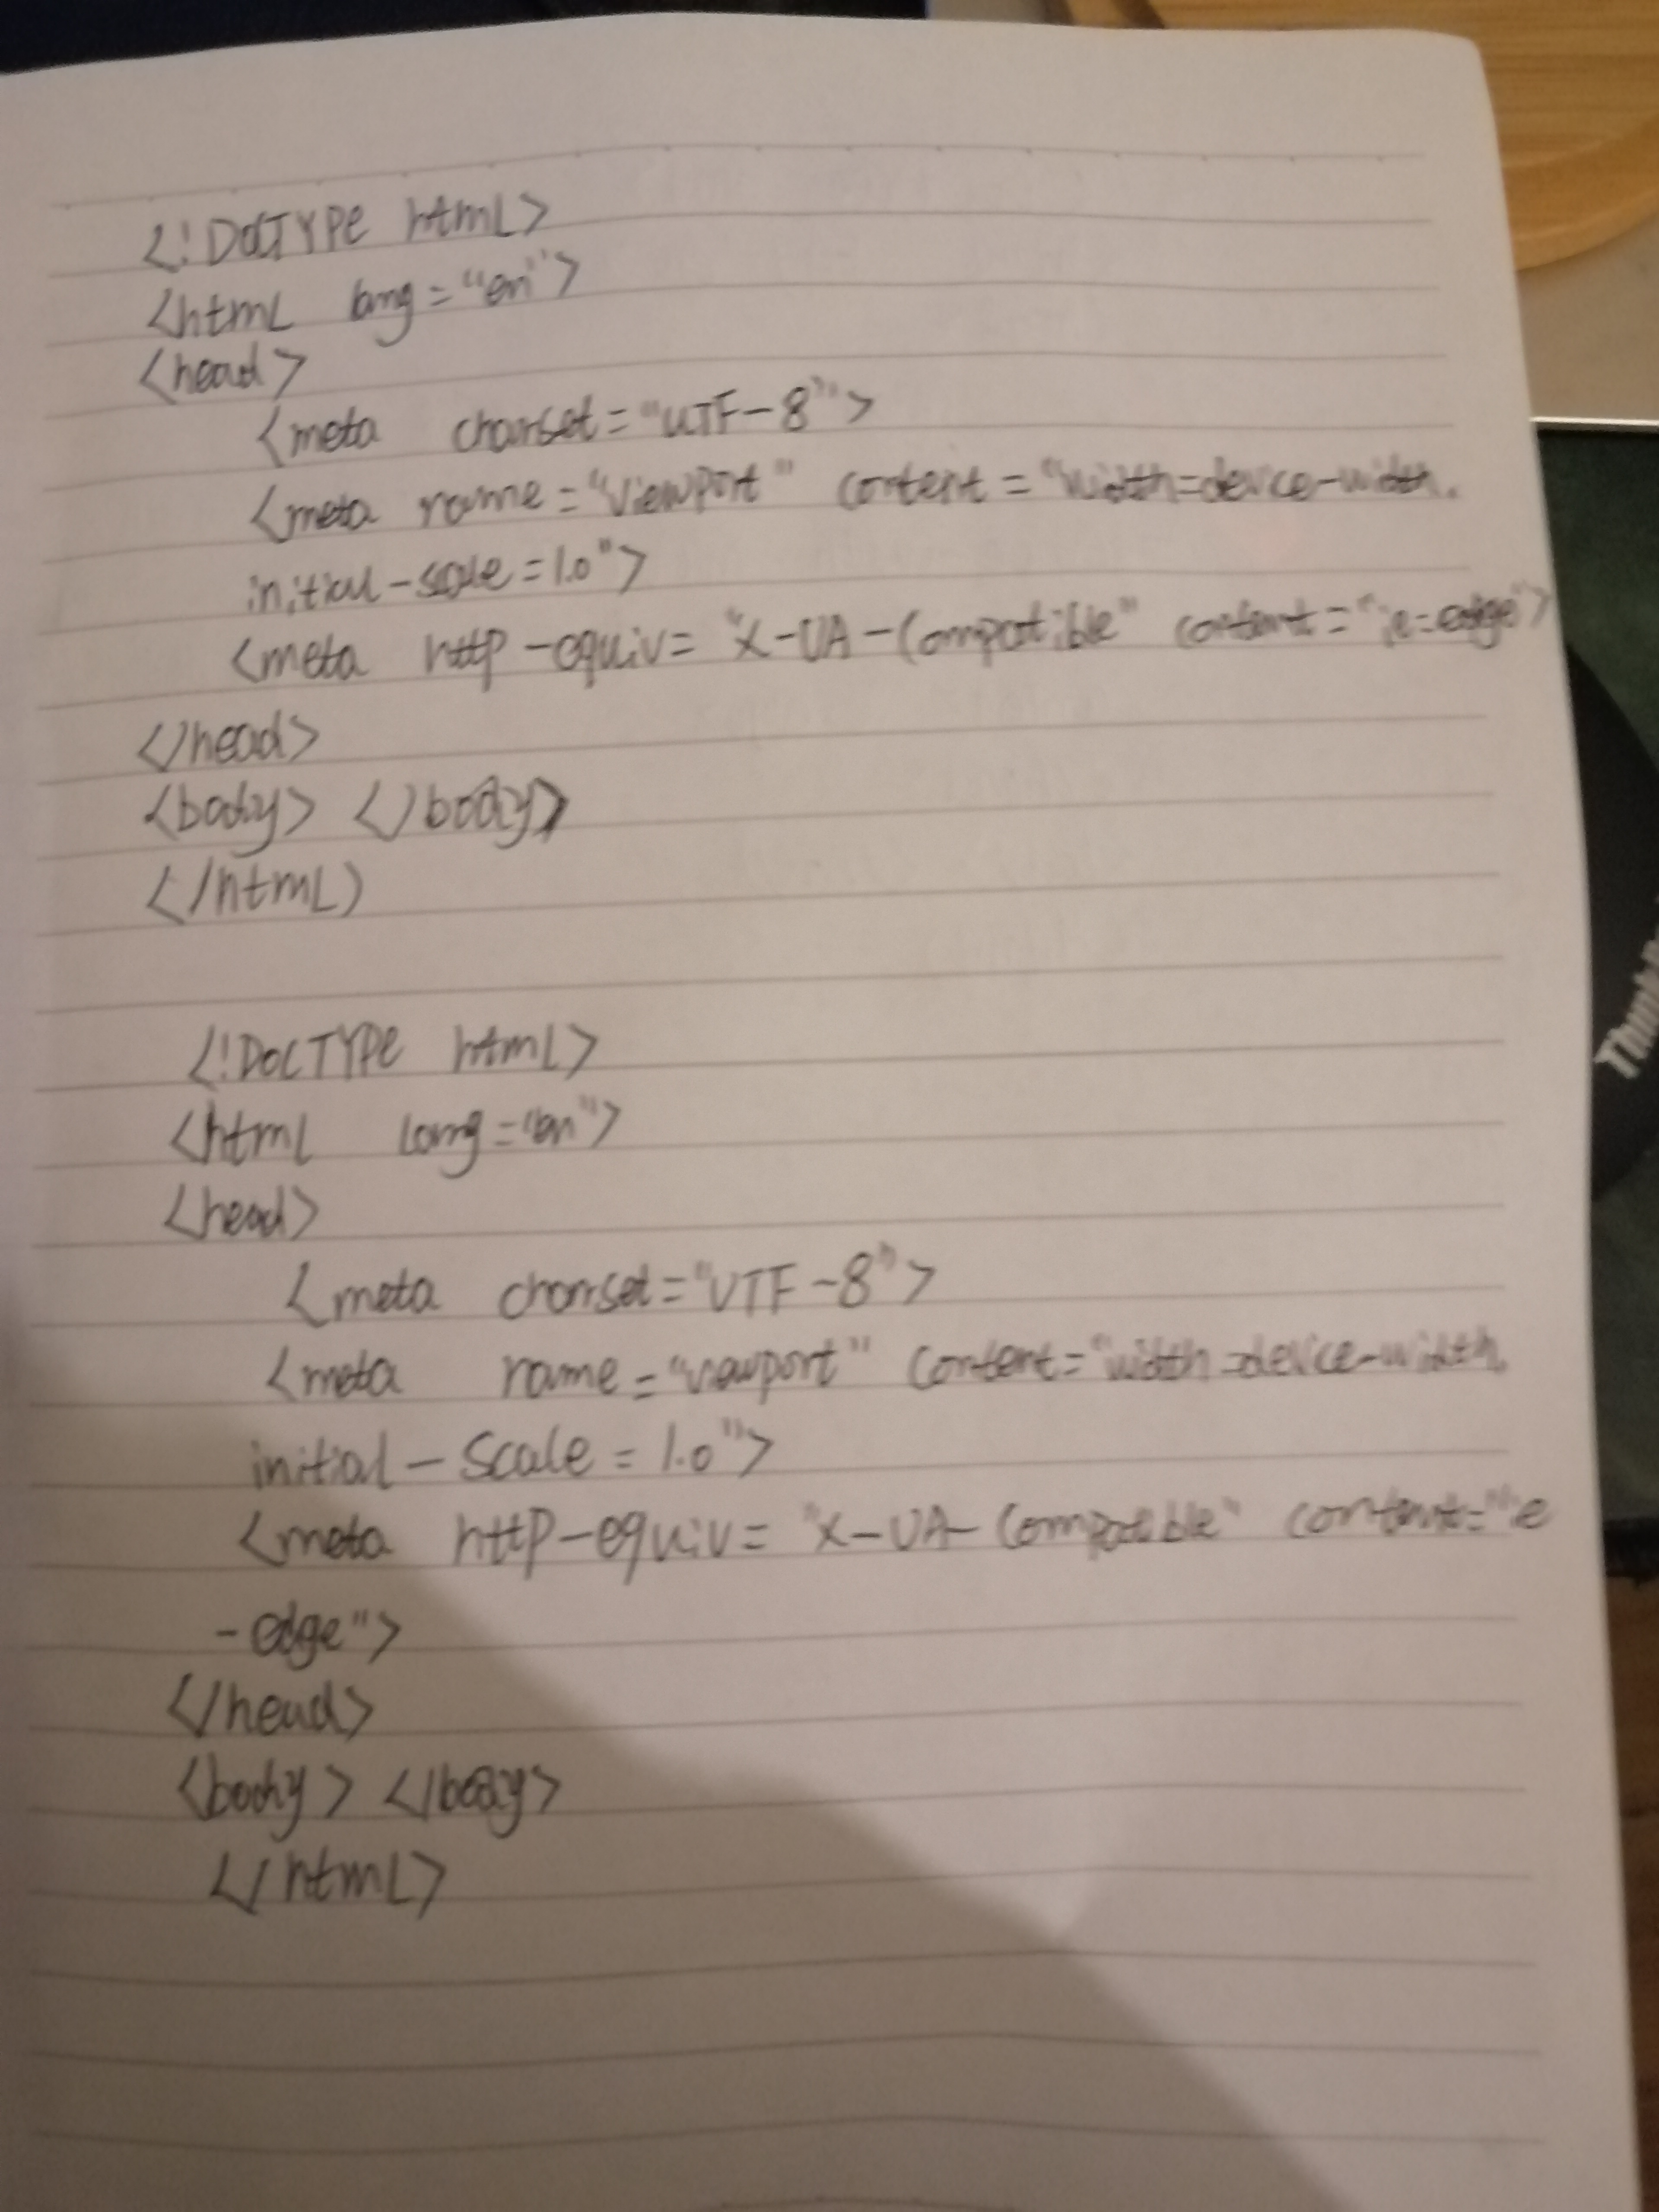 <!DOCTYPE html>
<html lang="en">
<head>
<meta charset="UTF-8">
<meta name="viewport" content="width=device-width,
initial-scale=1.0">
<meta http-equiv="X-UA-Compatible" content="ie=edge">
</head>
<body> </body>
</html)
<!DOCTYPE html>
<html lang="en">
<head>
<meta charset="UTF-8">
<meta name="viewport" content="width=device-width,
initial-scale=1.0">
<meta http-equiv="X-UA-Compatible" content="ie
-edge">
</head>
<body> </body>
</html>